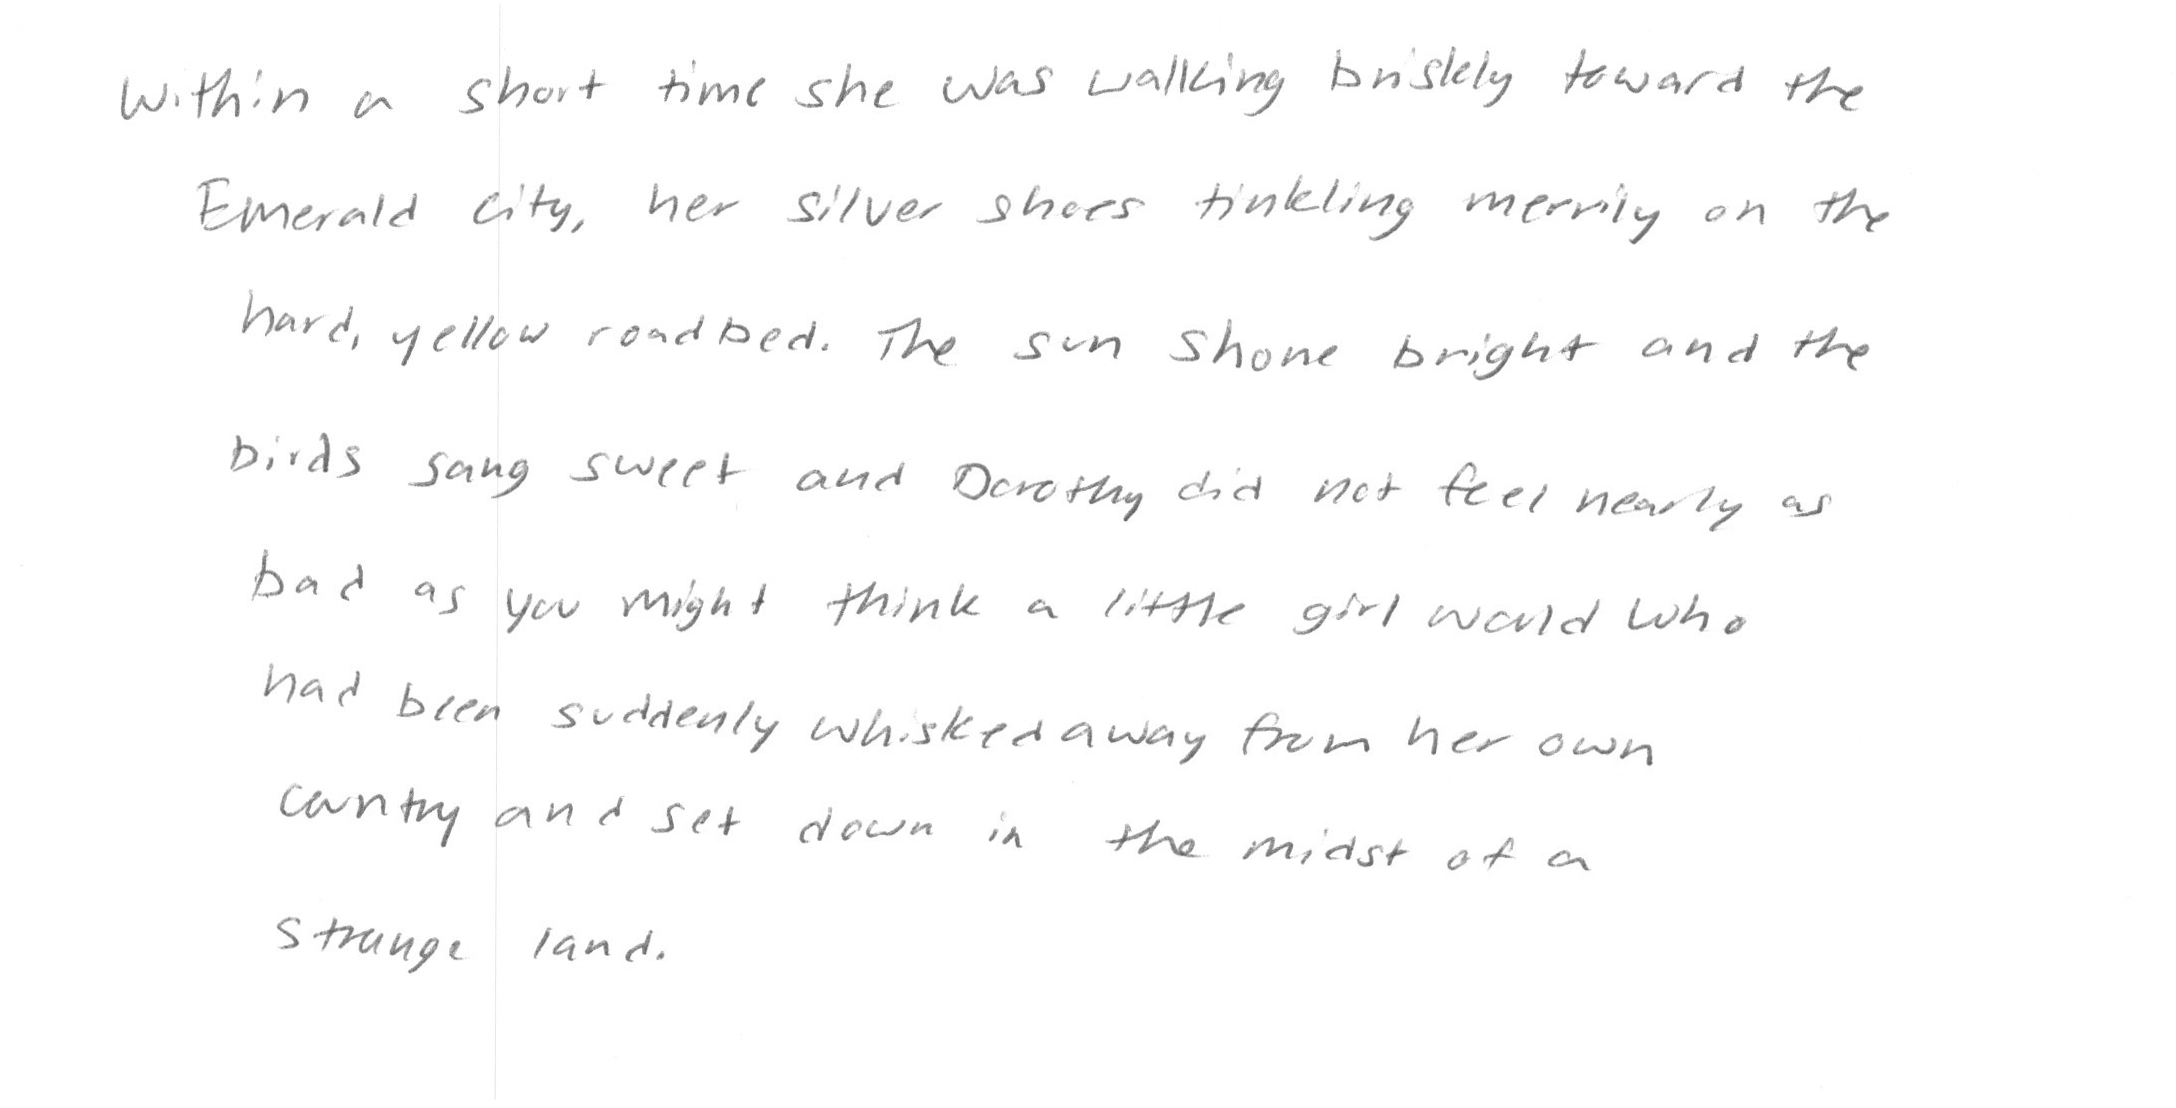 Within a short time she was walking briskly toward the
Emerald city, her silver shoes tinkling merrily on the
hard, yellow roadbed. The sun shone bright and the
birds sang sweet and Dorothy did not feel nearly as
bad as you might think a little girl would who
had been suddenly whisked away from her own
country and set down in the midst of a
strange land.